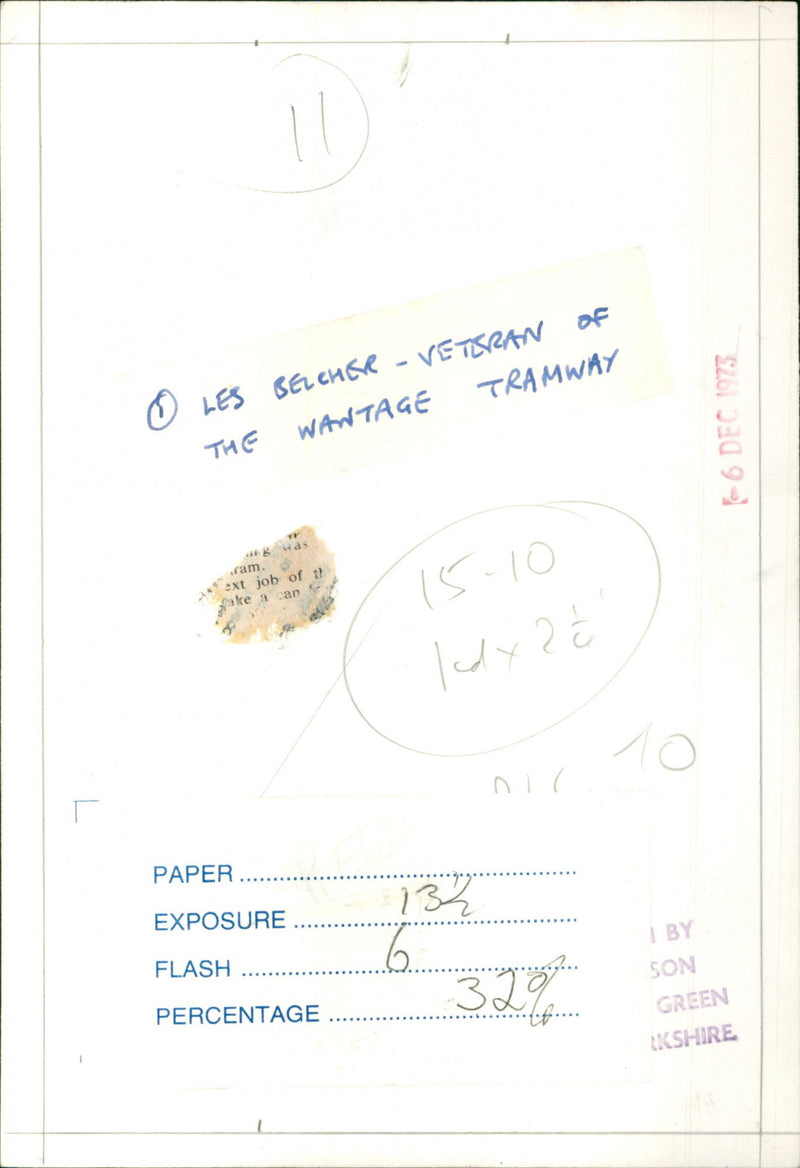 11
① LES BELCHER - VETERAN OF
THE WANTAGE TRAMWAY
- 6 DEC 1973
was
ram.
ext job of
ake a can
15-10
10
PAPER
EXPOSURE 13½
FLASH 6
PERCENTAGE 32%
BY
SON
GREEN
RKSHIRE